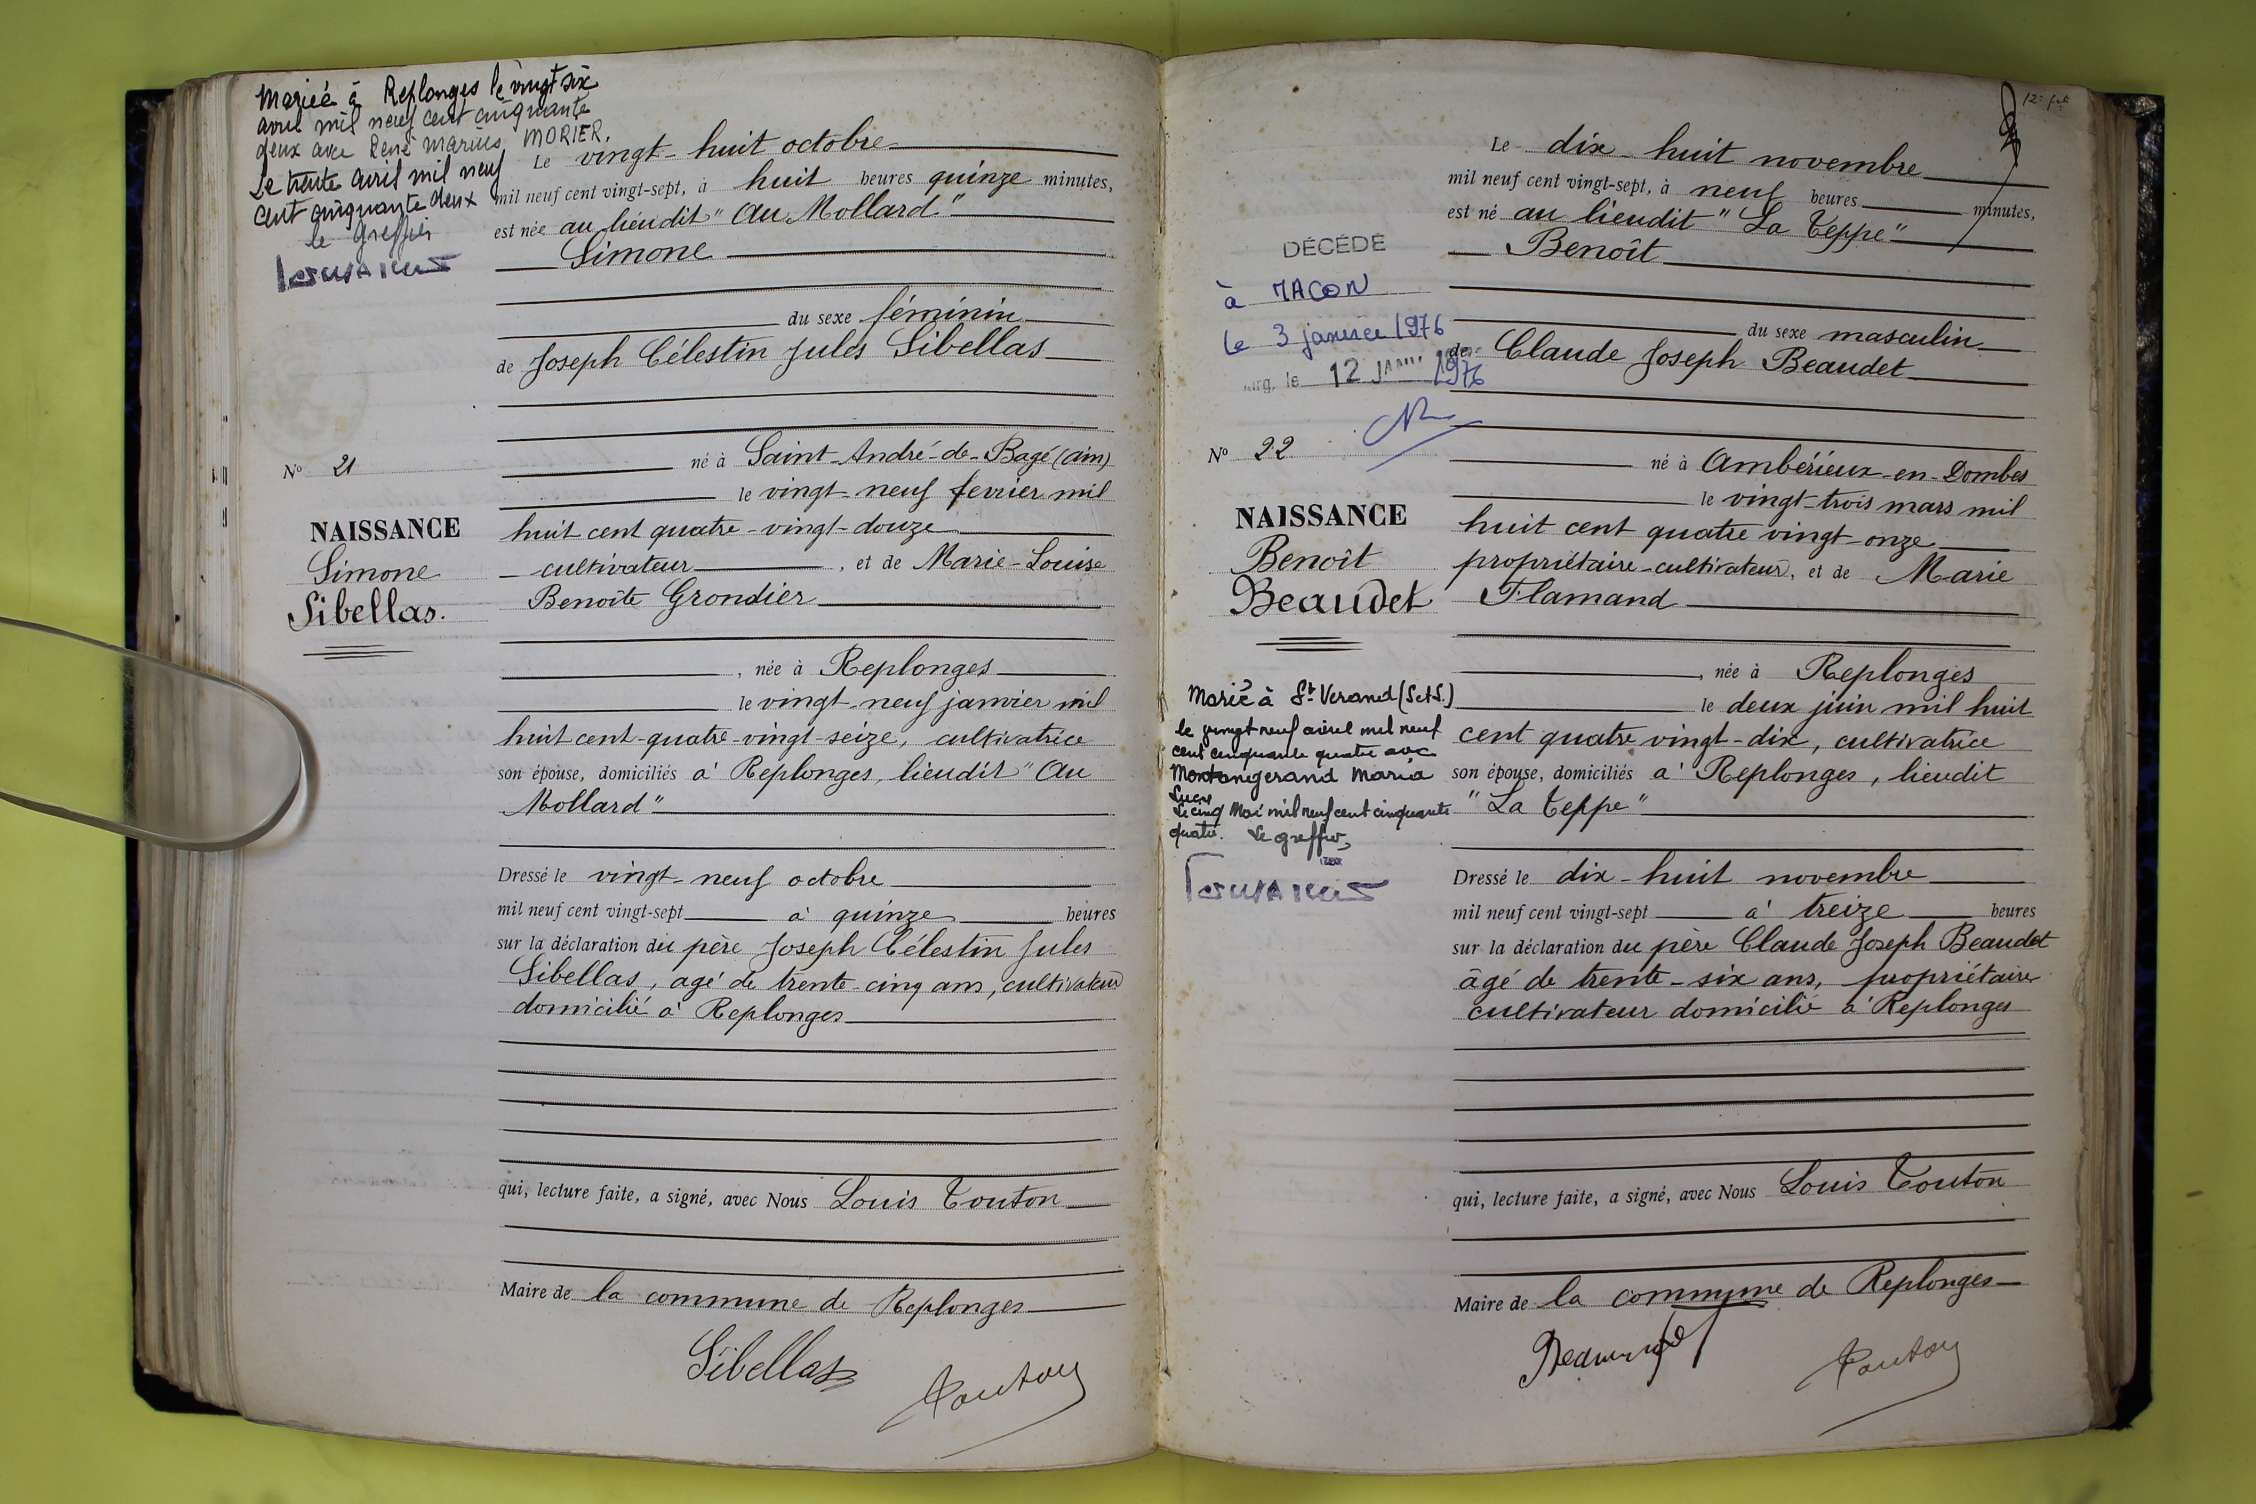 Mariée à Replonges le vingt six
avril mil neuf cent cinquante
deux avec René Marius MORIER.
Le trente avril mil neuf
cent cinquante deux
le Greffier
N° 21
NAISSANCE
Simone
Sibellas.
Le vingt-huit octobre
mil neuf cent vingt-sept, à huit heures quinze minutes,
est née au lieudit "Au Mollard"
Simone
du sexe féminin
de Joseph Célestin Jules Sibellas
né à Saint-André-de-Bagé (Ain)
le vingt-neuf fevrier mil
huit cent quatre-vingt-douze
cultivateur, et de Marie-Louise
Benoîte Grondier
, née à Replonges
le vingt-neuf janvier mil
huit cent-quatre-vingt-seize, cultivatrice
son épouse, domiciliés à Replonges, lieudit "Au
Mollard"
Dressé le vingt-neuf octobre
mil neuf cent vingt-sept à quinze heures
sur la déclaration du père Joseph Célestin Jules
Sibellas, agé de trente-cinq ans, cultivateur
domicilié à Replonges
qui, lecture faite, a signé, avec Nous Louis Touton
Maire de la commune de Replonges
Sibellas
Touton
12e f.et
DÉCÉDÉ
à MACON
le 3 janvier 1976
le 12 JANV 1976
N° 22
NAISSANCE
Benoît
Beaudet
Marié à St Verand (S.et.S.)
le vingt neuf avril mil neuf
cent cinquante quatre avec
Montangerand Maria
Lucy
Le cinq Mai mil neuf cent cinquante
quatre. Le greffier,
Le dix-huit novembre
mil neuf cent vingt-sept, à neuf heures minutes,
est né au lieudit "La Teppe"
Benoît
du sexe masculin
de Claude Joseph Beaudet
né à Ambérieux-en-Dombes
le vingt-trois mars mil
huit cent quatre vingt-onze
propriétaire-cultivateur, et de Marie
Flamand
, née à Replonges
le deux juin mil huit
cent quatre vingt-dix, cultivatrice
son épouse, domiciliés à Replonges, lieudit
"La Teppe"
Dressé le dix-huit novembre
mil neuf cent vingt-sept à treize heures
sur la déclaration du père Claude Joseph Beaudet
âgé de trente-six ans, propriétaire
cultivateur domicilié à Replonges
qui, lecture faite, a signé, avec Nous Louis Touton
Maire de la commune de Replonges
Beaudet
Touton